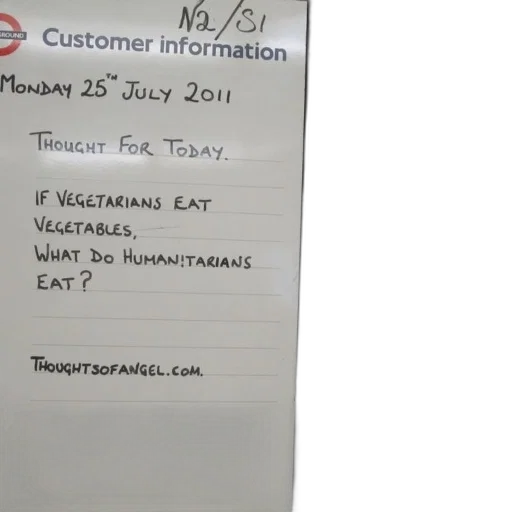 N2/S1
ROUND
Customer information
MONDAY 25TH JULY 2011
THOUGHT FOR TODAY.
IF VEGETARIANS EAT
VEGETABLES,
WHAT DO HUMANITARIANS
EAT?
THOUGHTSOFANGEL.COM.